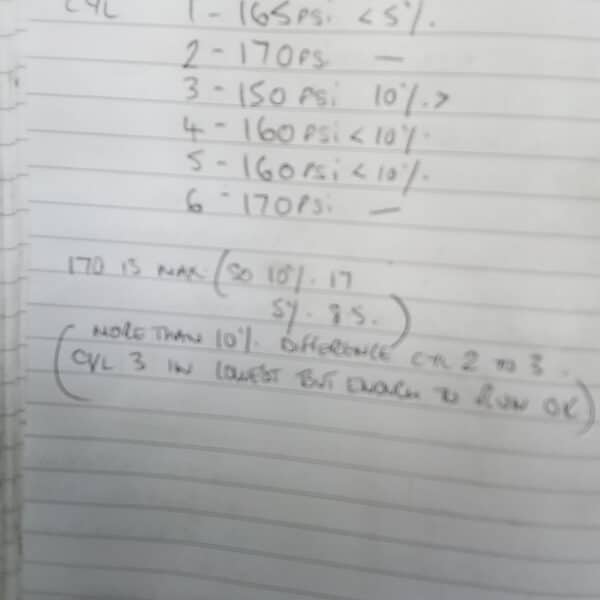 CYL 1 - 165 PSi < 5%.
2 - 170 PSi —
3 - 150 PSi 10% >
4 - 160 PSi < 10%.
5 - 160 PSi < 10%.
6 - 170 PSi —
170 IS MAX (SO 10%. 17
5%. 8.5.)
(MORE THAN 10%. DIFFERENCE CYL 2 TO 3.
CYL 3 IN LOWEST BUT ENOUGH TO RUN OK)